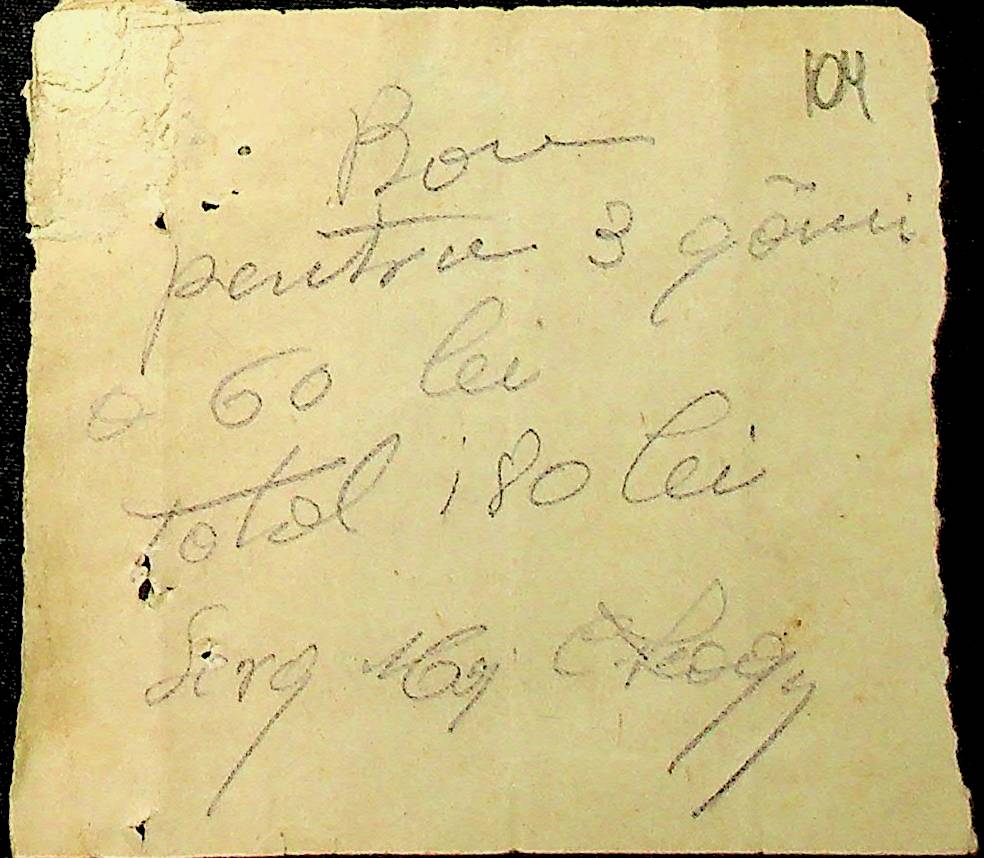 104
Bon
pentru 3 găini
a 60 lei
total 180 lei
Serg